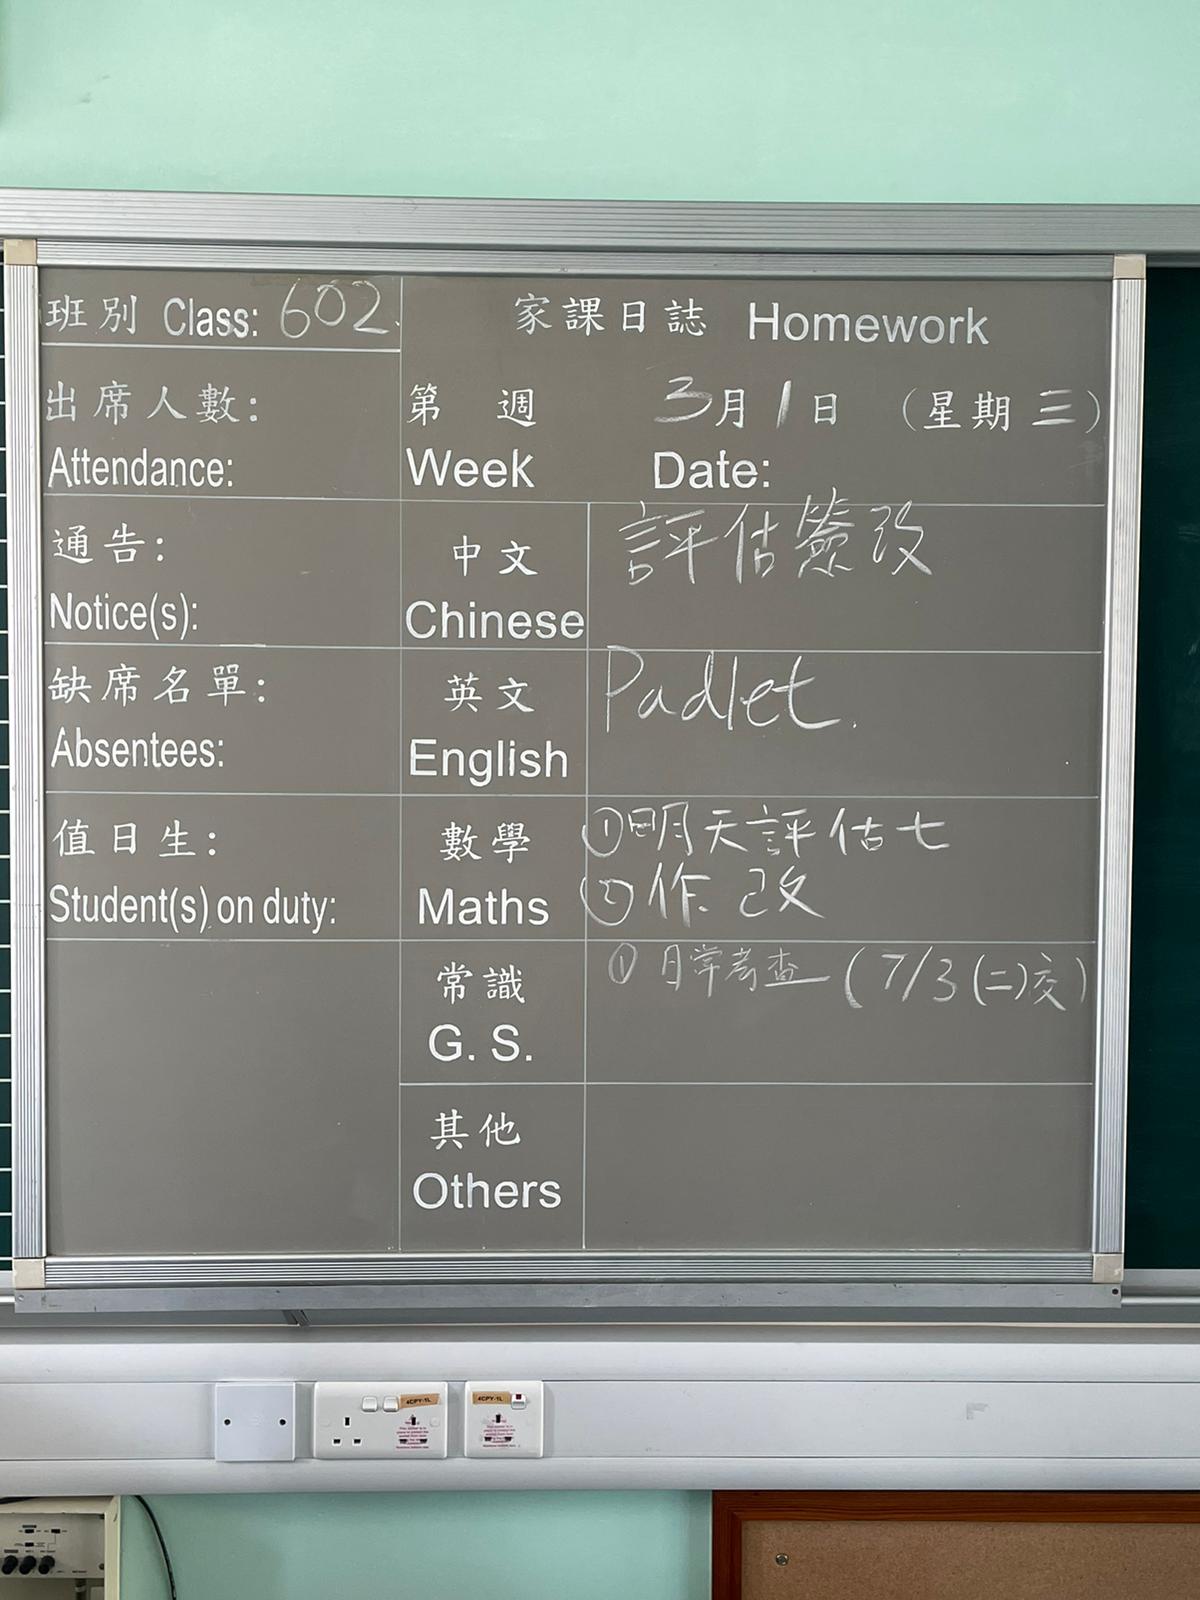 班別 Class: 602.
家課日誌 Homework
出席人數:
Attendance:
第 週 3月1日 (星期三)
Week Date:
通告:
Notice(s):
中文
Chinese
評估簽改
缺席名單:
Absentees:
英文
English
Padlet.
值日生:
Student(s) on duty:
數學
Maths
①明天評估七
②作改
常識
G. S.
① 日常考查 (7/3(二)交)
其他
Others
4CPY-1L
4CPY-1L